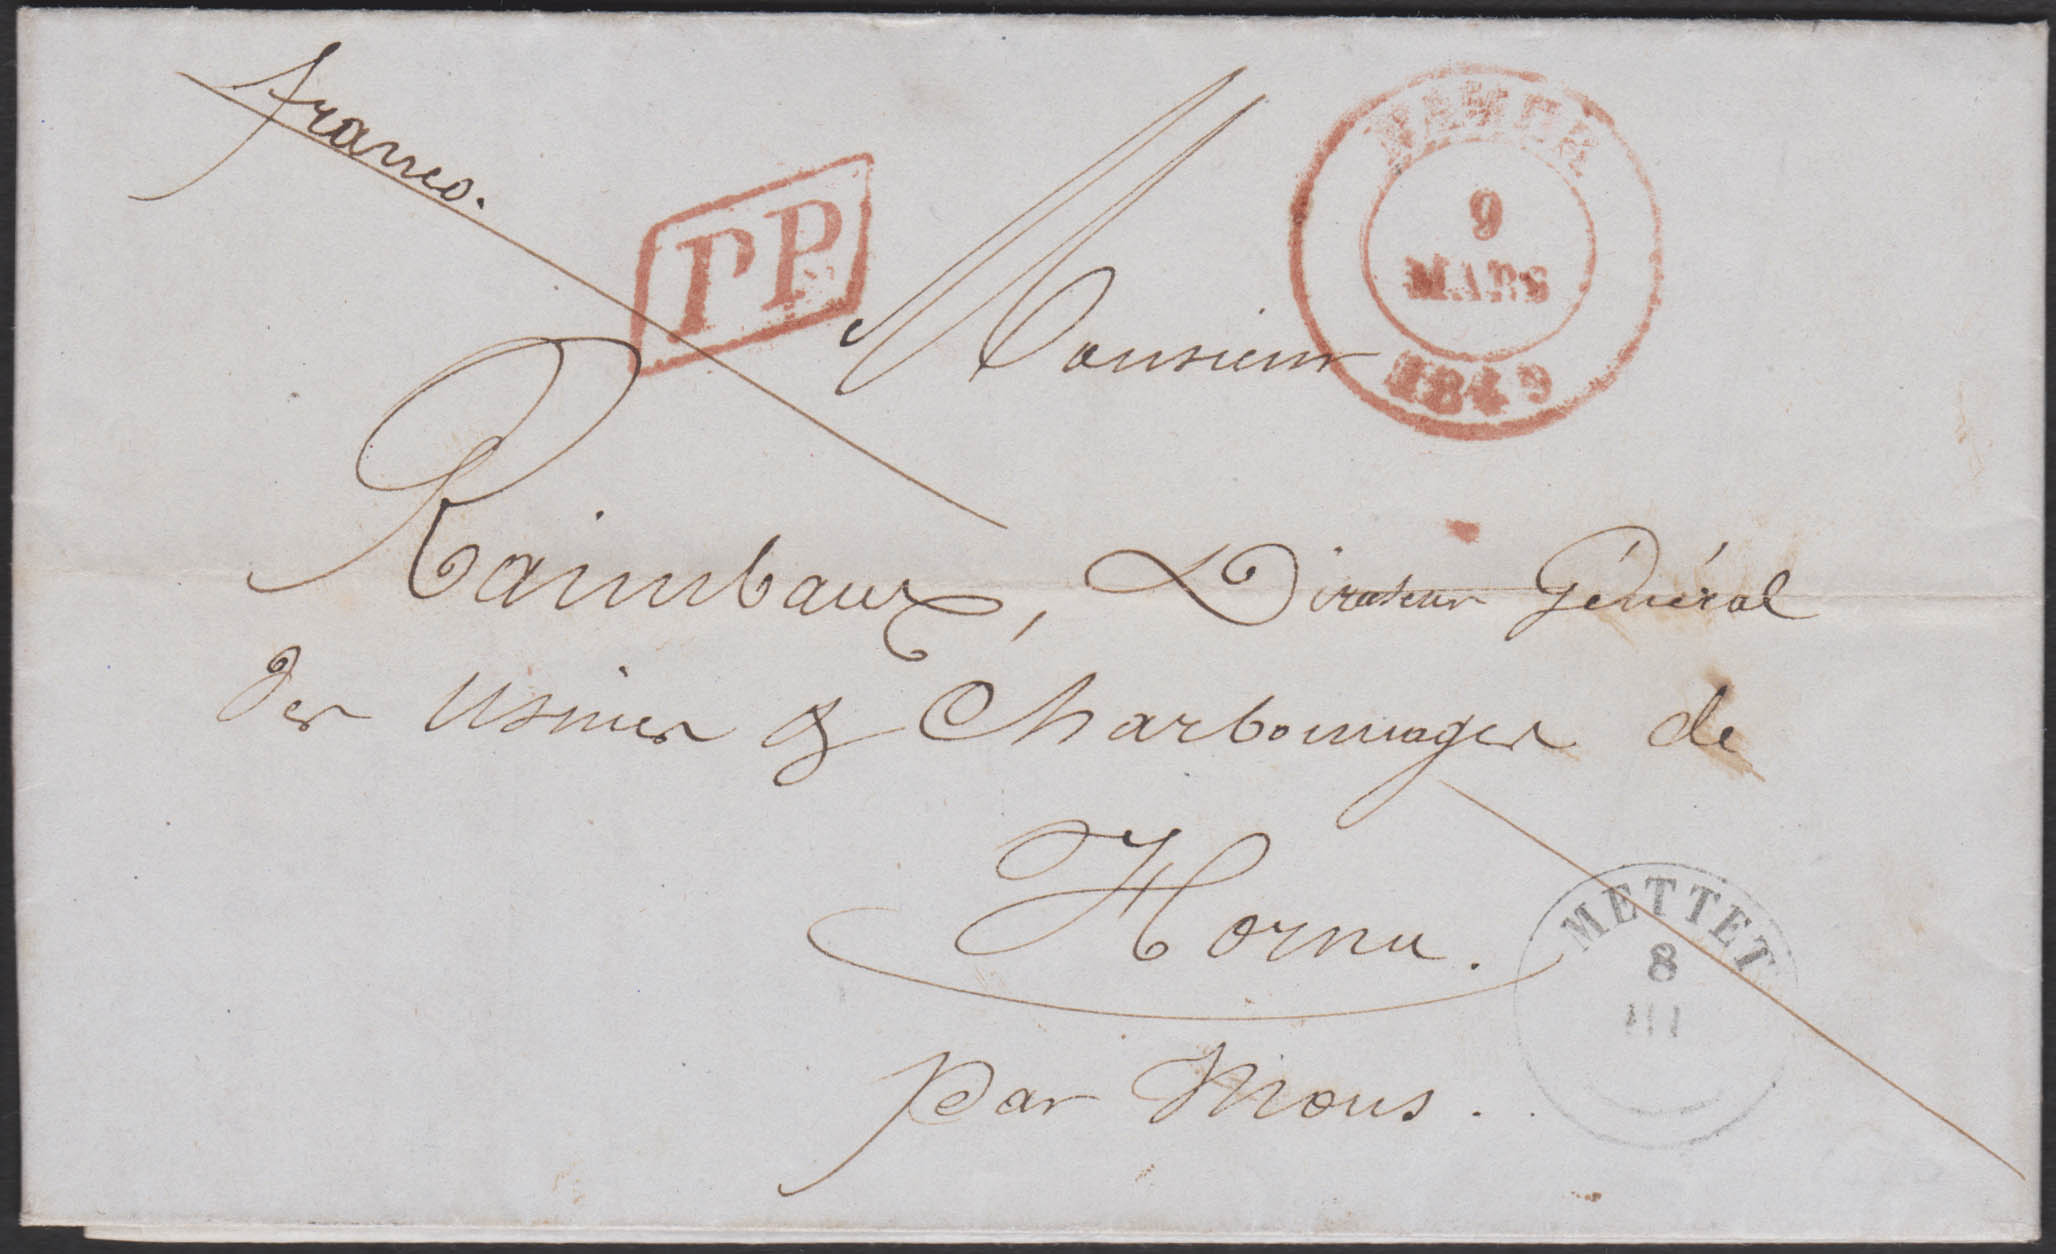 franco.
PP
NAMUR
9
MARS
1849
Monsieur
Raimbaux, Directeur Général
des Usines & Charbonnages de
Hornu.
par Mons.
METTET
8
III